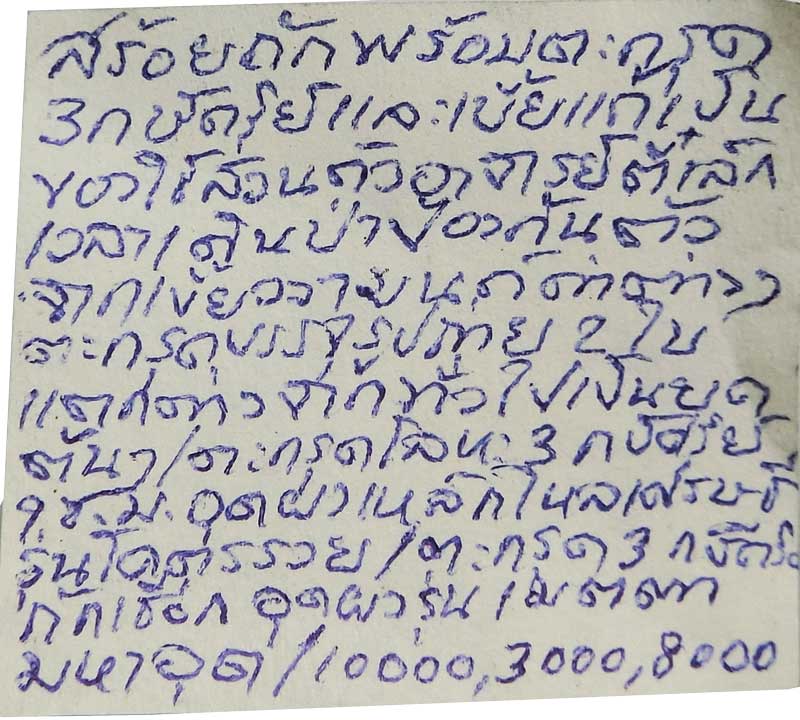 สร้อยถักพร้อมตะกรุด
3กษัตริย์และเขี้ยแก้เป็น
ของใช้ส่วนตัวอาจารย์ต๋ำเล็ก
เวลาเดินป่าป้องกันตัว
จากเขี้ยวงา
ตะกรุดบรรจุรูปถ่าย 2 ใบ
แตกต่างจากทั่วไปเป็นยุค
ต้นๆ/ตะกรุดโลหะ 3 กษัตริย์
9 ซ.ม. อุดผงเหล็กไหลเศรษฐี
รุ่นโคตรรวย/ตะกรุด 3 กษัตริ
ถักเชือก อุดผงรุ่นเมตตา
มหาอุด/10000,3000,8000